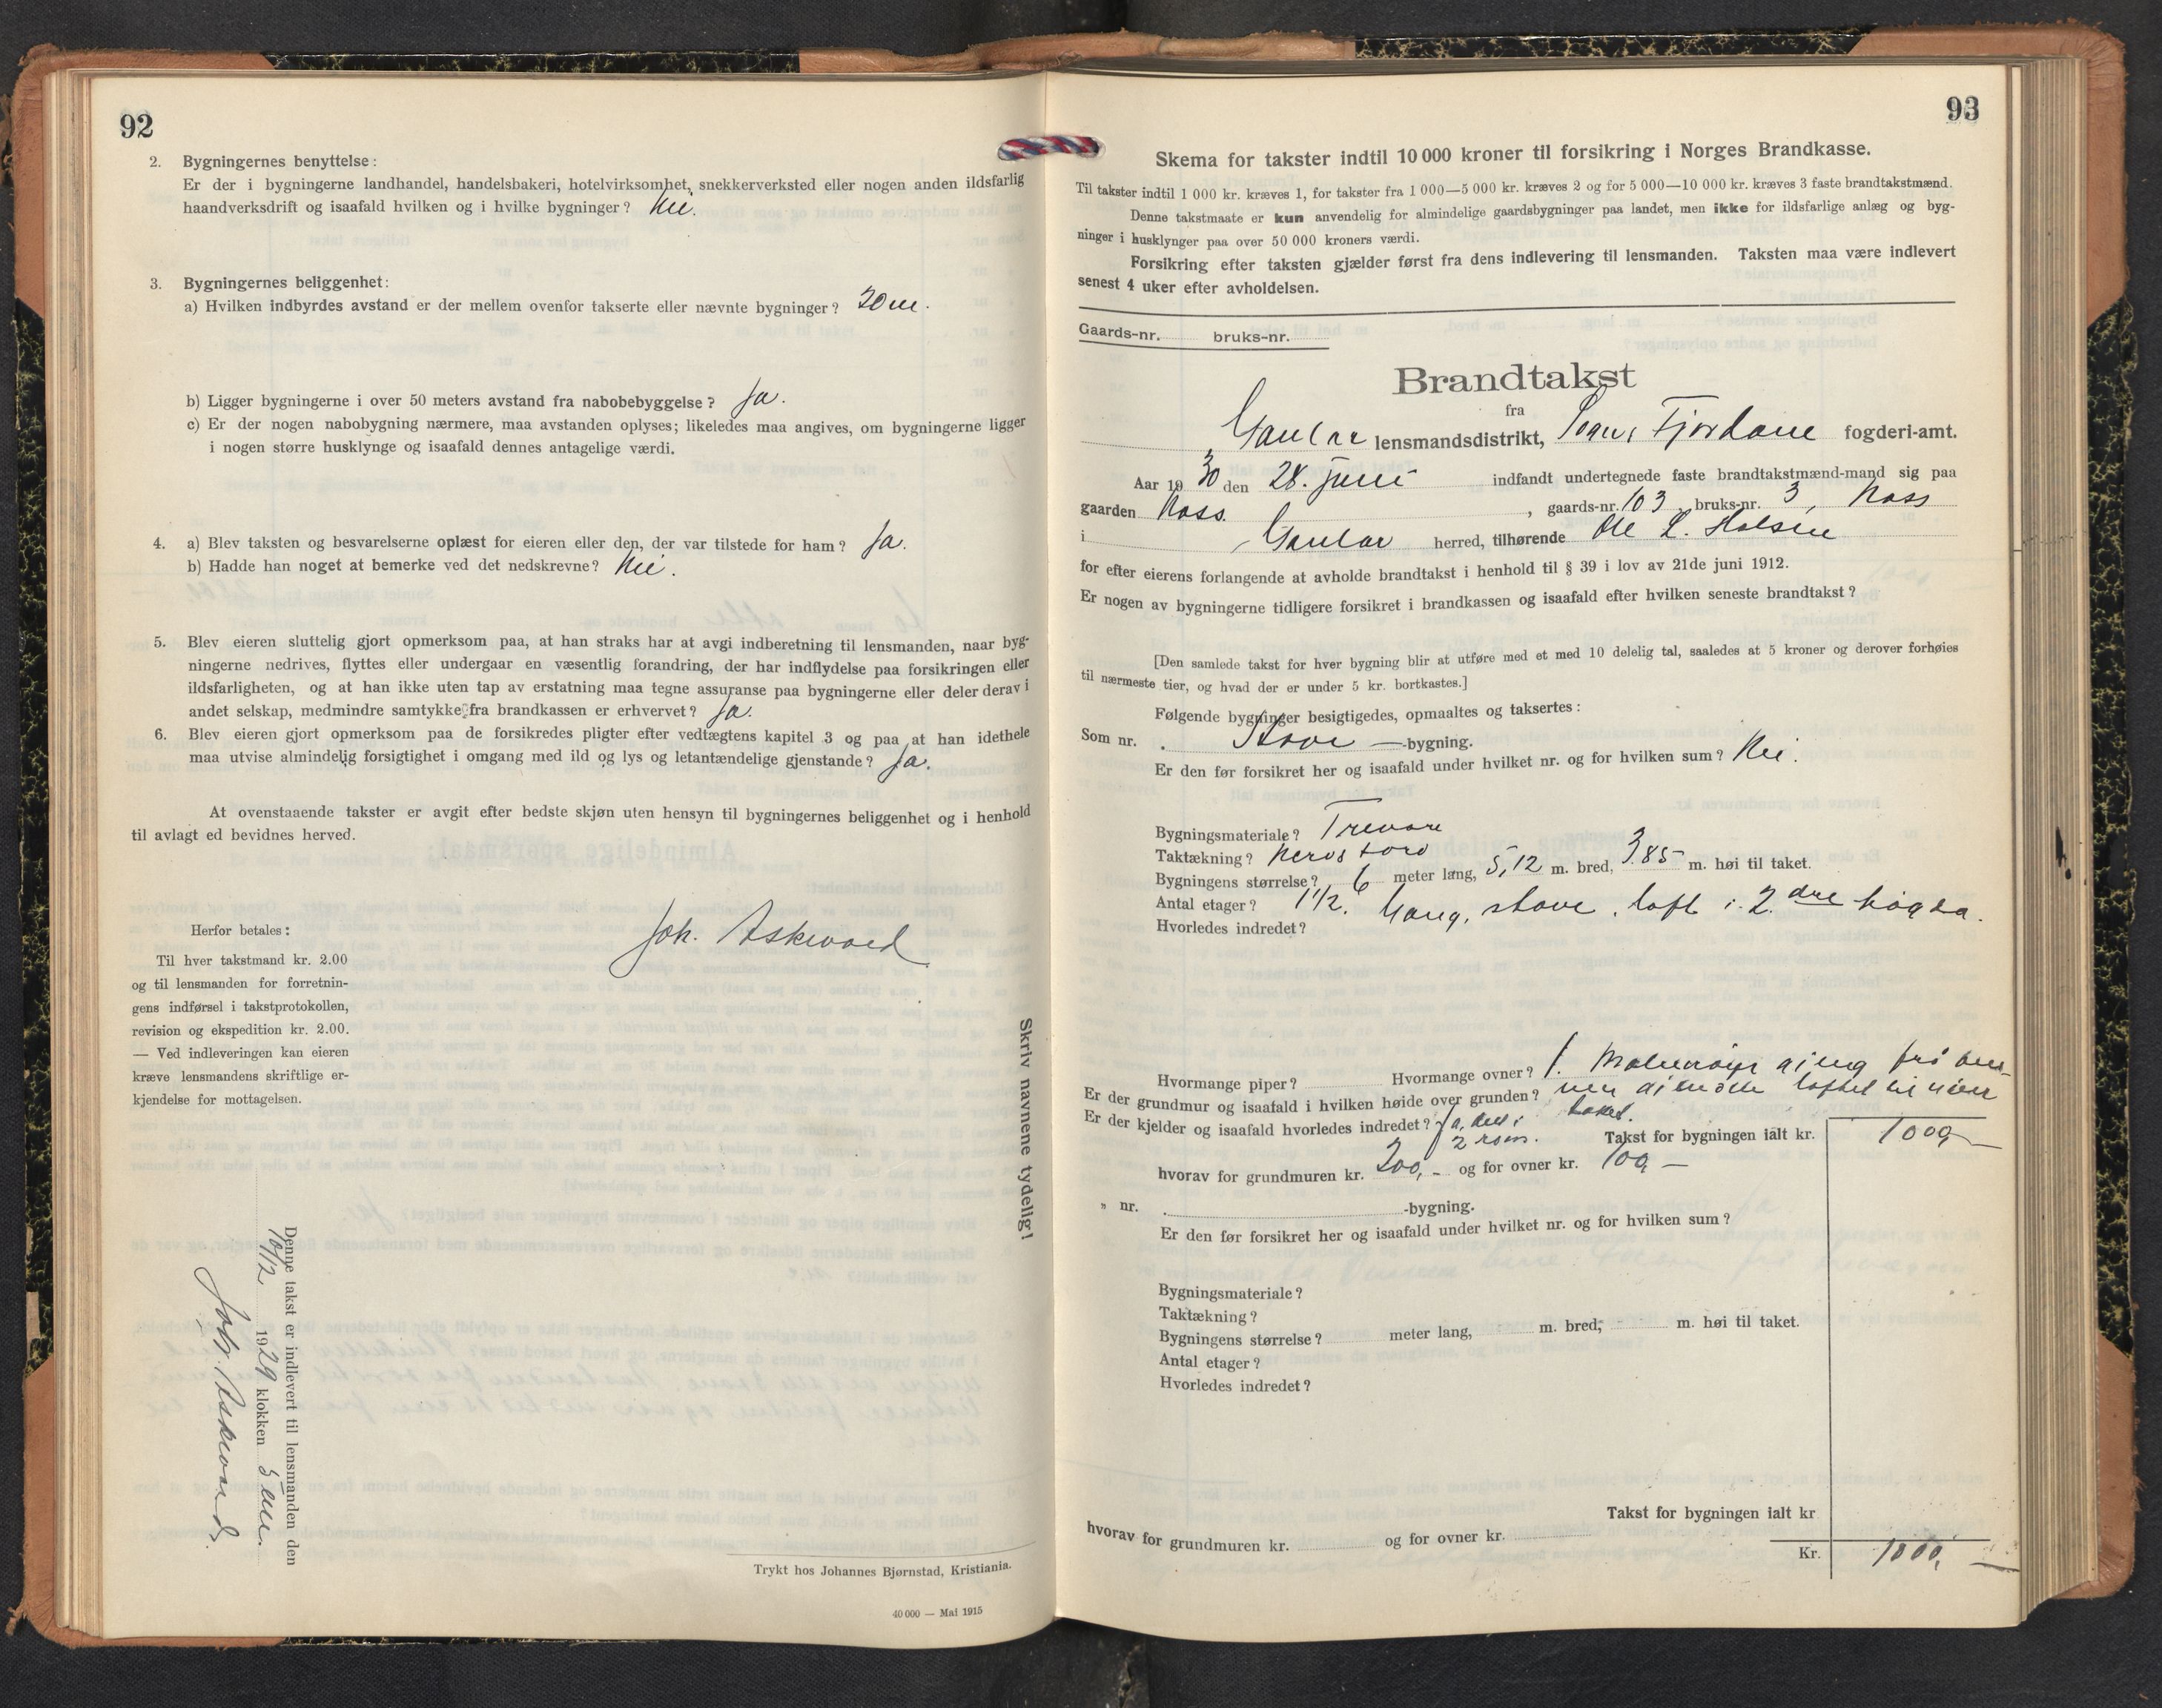 92
2. Bygningernes benyttelse:
Er der i bygningerne landhandel, handelsbakeri, hotelvirksomhet, snekkerverksted eller nogen anden ildsfarlig
haandverksdrift og isaafald hvilken og i hvilke bygninger? Nei.
3. Bygningernes beliggenhet:
a) Hvilken indbyrdes avstand er der mellem ovenfor takserte eller nævnte bygninger? 20 m.
b) Ligger bygningerne i over 50 meters avstand fra nabobebyggelse? Ja.
c) Er der nogen nabobygning nærmere, maa avstanden oplyses; likeledes maa angives, om bygningerne ligger
i nogen større husklynge og isaafald dennes antagelige værdi.
4. a) Blev taksten og besvarelserne oplæst for eieren eller den, der var tilstede for ham? Ja.
b) Hadde han noget at bemerke ved det nedskrevne? Nei.
5. Blev eieren sluttelig gjort opmerksom paa, at han straks har at avgi indberetning til lensmanden, naar byg-
ningerne nedrives, flyttes eller undergaar en væsentlig forandring, der har indflydelse paa forsikringen eller
ildsfarligheten, og at han ikke uten tap av erstatning maa tegne assuranse paa bygningerne eller deler derav i
andet selskap, medmindre samtykke fra brandkassen er erhvervet? Ja.
6. Blev eieren gjort opmerksom paa de forsikredes pligter efter vedtægtens kapitel 3 og paa at han idethele
maa utvise almindelig forsigtighet i omgang med ild og lys og letantændelige gjenstande? Ja.
At ovenstaaende takster er avgit efter bedste skjøn uten hensyn til bygningernes beliggenhet og i henhold
til avlagt ed bevidnes herved.
Joh. Askvoed
Herfor betales:
Til hver takstmand kr. 2.00
og til lensmanden for forretnin-
gens indførsel i takstprotokollen,
revision og ekspedition kr. 2.00.
— Ved indleveringen kan eieren
kræve lensmandens skriftlige er-
kjendelse for mottagelsen.
Skriv navnene tydelig!
Denne takst er indlevert til lensmanden den
10/12 1929 klokken 5 em.
Joh. Askvoed.
Trykt hos Johannes Bjørnstad, Kristiania.
40 000 — Mai 1915
93
Skema for takster indtil 10 000 kroner til forsikring i Norges Brandkasse.
Til takster indtil 1 000 kr. kræves 1, for takster fra 1 000—5 000 kr. kræves 2 og for 5 000—10 000 kr. kræves 3 faste brandtakstmænd.
Denne takstmaate er kun anvendelig for almindelige gaardsbygninger paa landet, men ikke for ildsfarlige anlæg og byg-
ninger i husklynger paa over 50 000 kroners værdi.
Forsikring efter taksten gjælder først fra dens indlevering til lensmanden. Taksten maa være indlevert
senest 4 uker efter avholdelsen.
Gaards-nr. bruks-nr.
Brandtakst
fra
Gaular lensmandsdistrikt, Sogn, Fjordane fogderi-amt.
Aar 1930 den 28. juni indfandt undertegnede faste brandtakstmænd-mand sig paa
gaarden Noss. , gaards-nr. 103 bruks-nr. 3, Noss
i Gaular herred, tilhørende Ole L. Holsen
for efter eierens forlangende at avholde brandtakst i henhold til § 39 i lov av 21de juni 1912.
Er nogen av bygningerne tidligere forsikret i brandkassen og isaafald efter hvilken seneste brandtakst?
[Den samlede takst for hver bygning blir at utføre med et med 10 delelig tal, saaledes at 5 kroner og derover forhøies
til nærmeste tier, og hvad der er under 5 kr. bortkastes.]
Følgende bygninger besigtigedes, opmaaltes og taksertes:
Som nr. . Stove -bygning.
Er den før forsikret her og isaafald under hvilket nr. og for hvilken sum? Nei.
Bygningsmateriale? Trevare
Taktækning? Nevs torv
Bygningens størrelse? 6 meter lang, 5,12 m. bred, 3,85 m. høi til taket.
Antal etager? 1 1/2. Gang, stove, loft i 2. dre høgda.
Hvorledes indredet?
Hvormange piper? Hvormange ovner? 1.
Er der grundmur og isaafald i hvilken høide over grunden?
Er der kjelder og isaafald hvorledes indredet? Ja, 2 rom.
Takst for bygningen ialt kr. 1000,—
hvorav for grundmuren kr. 200,- og for ovner kr. 100,—
„ nr. . -bygning.
Er den før forsikret her og isaafald under hvilket nr. og for hvilken sum?
Bygningsmateriale?
Taktækning?
Bygningens størrelse? meter lang, m. bred, m. høi til taket.
Antal etager?
Hvorledes indredet?
Takst for bygningen ialt kr
hvorav for grundmuren kr. og for ovner kr.
Kr. 1000,—